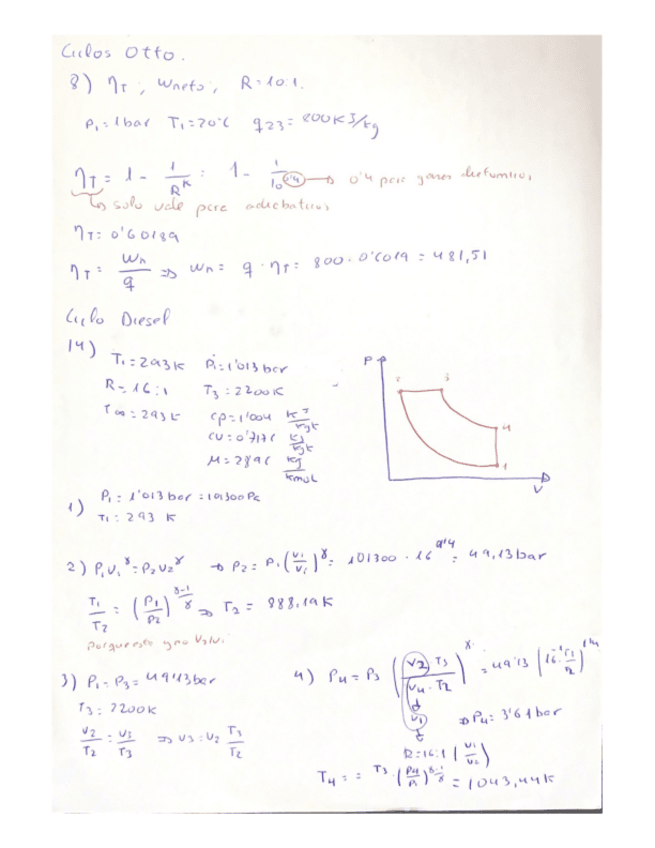 Ciclos Otto.
8) ηT ; Wneto ; R=10:1.
P1=1bar T1=20°C q23= 800KJ/kg
ηT = 1 - 1/R^K = 1 - 1/10^0'4 → 0'4 para gases diatomicos
↳ solo vale para adiabaticos
ηT= 0'60189
ηT= Wn/q ⇒ Wn= q · ηT= 800 · 0'6019 = 481,51
Ciclo Diesel
14)
T1=293K P1=1'013bar
R=16:1 T3=2200K
T∞=293K Cp=1'004 KJ/KgK
CV=0'717 KJ/KgK
M=28'9 kg/Kmol
P
2 3
4
1
V
1) P1= 1'013bar =101300Pa
T1= 293 K
2) P1V1^γ=P2V2^γ → P2= P1(V1/V2)^γ= 101300 · 16^1'4 = 49,13bar
T1/T2 = (P1/P2)^(γ-1/γ) ⇒ T2= 888,19K
porque esto y no V2/V1
3) P2=P3=49'13bar
T3=2200K
V2/T2 = V3/T3 ⇒ V3=V2 T3/T2
4) P4=P3 (V2 T3/V4·T2)^γ = 49'13 (16^-1 T3/T2)^1'4
V1 ⇒P4= 3'61bar
R=16:1 (V1/V2)
T4= = T3·(P4/P3)^(γ-1/γ) = 1043,44K